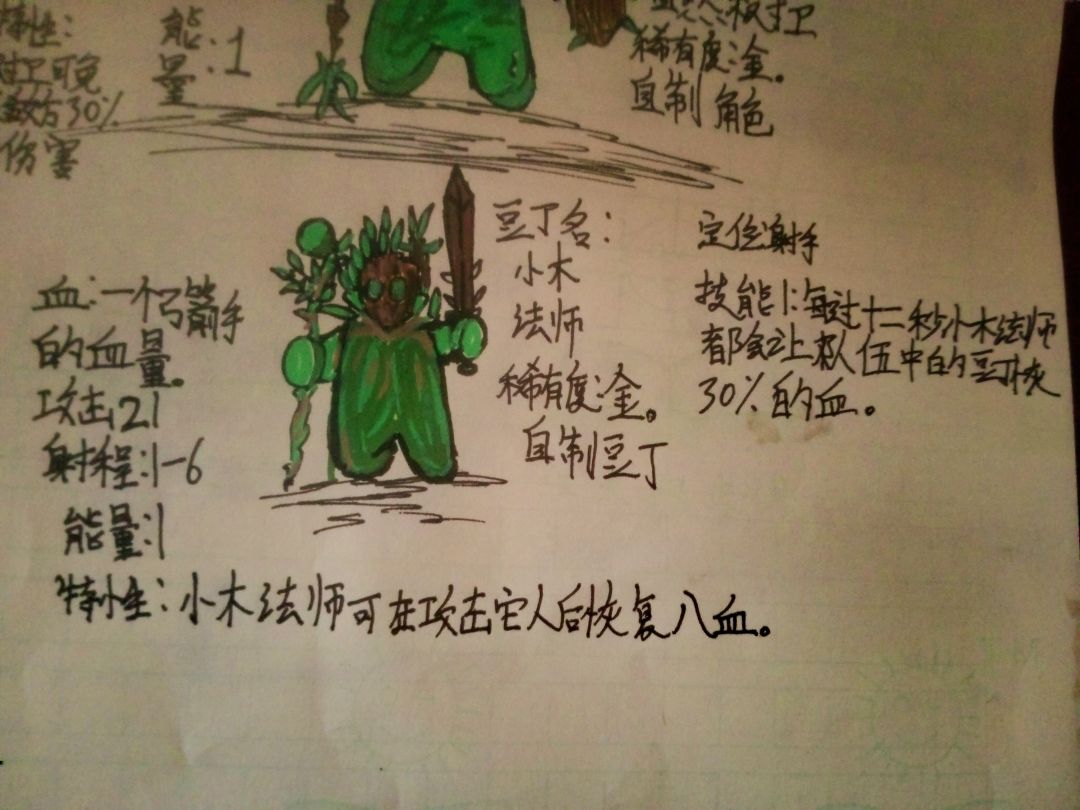 特性：
能量：1
可免
敌方30%
伤害
板卫
稀有度：金。
自制角色
豆丁名：
小木
法师
稀有度：金。
自制豆丁
定位射手
技能1：每过十二秒小木法师
都会让队伍中的豆丁恢
30%的血。
血：一个弓箭手
的血量。
攻击21
射程：1-6
能量：1
特性：小木法师可在攻击它人后恢复八血。